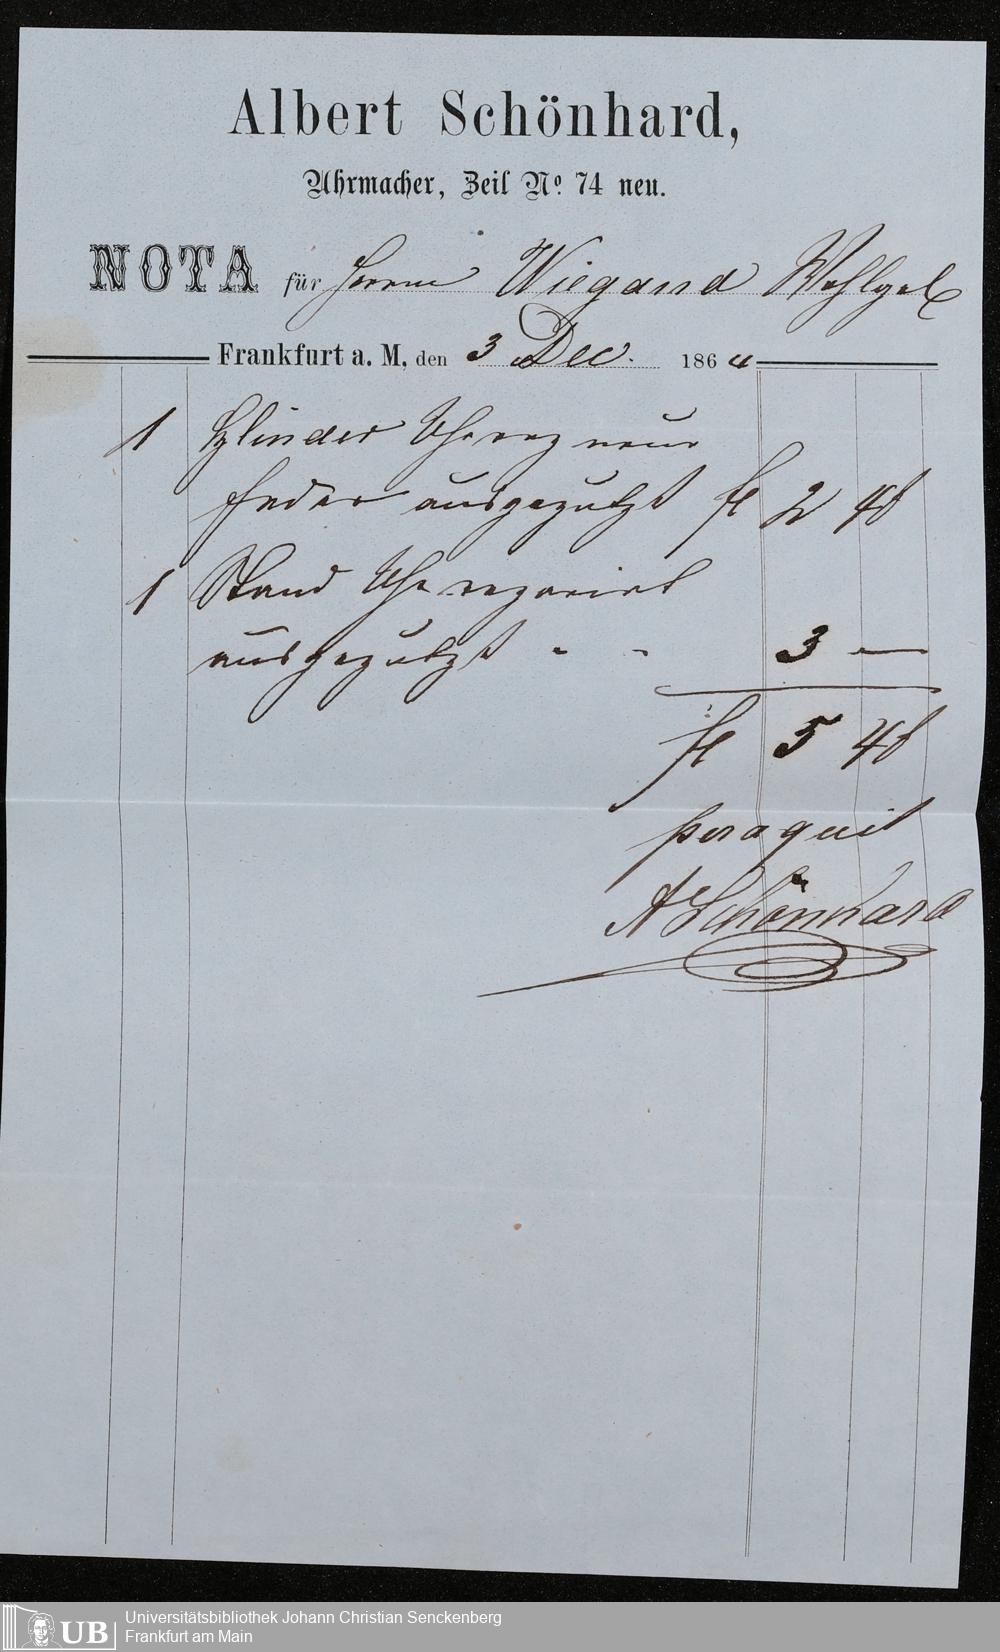 Albert Schönhard,
Uhrmacher, Zeil No. 74 neu.
NOTA für Herrn Wiegand Wohlgeb
Frankfurt a. M, den 3 Dec. 1864
1 Cylinder Uhr rep neue
Feder ausgeputzt fl 2 48
1 Stand Uhr reparirt
ausgeputzt - - 3 —
fl 5 48
per aquit
A Schönhard
Universitätsbibliothek Johann Christian Senckenberg
UB Frankfurt am Main